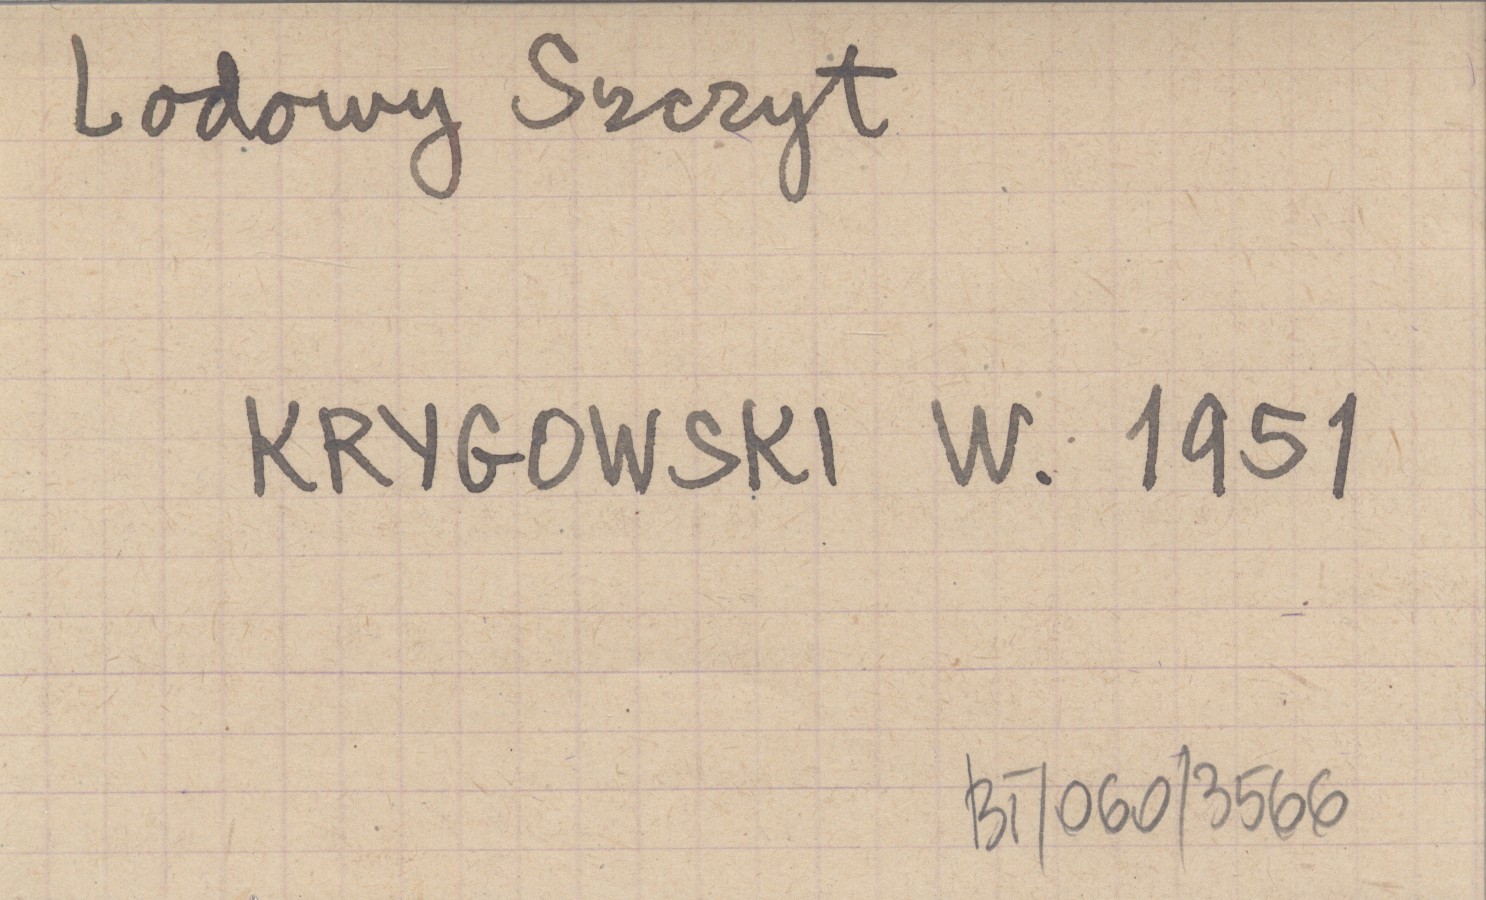 Lodowy Szczyt
KRYGOWSKI W. 1951
BT/060/3566